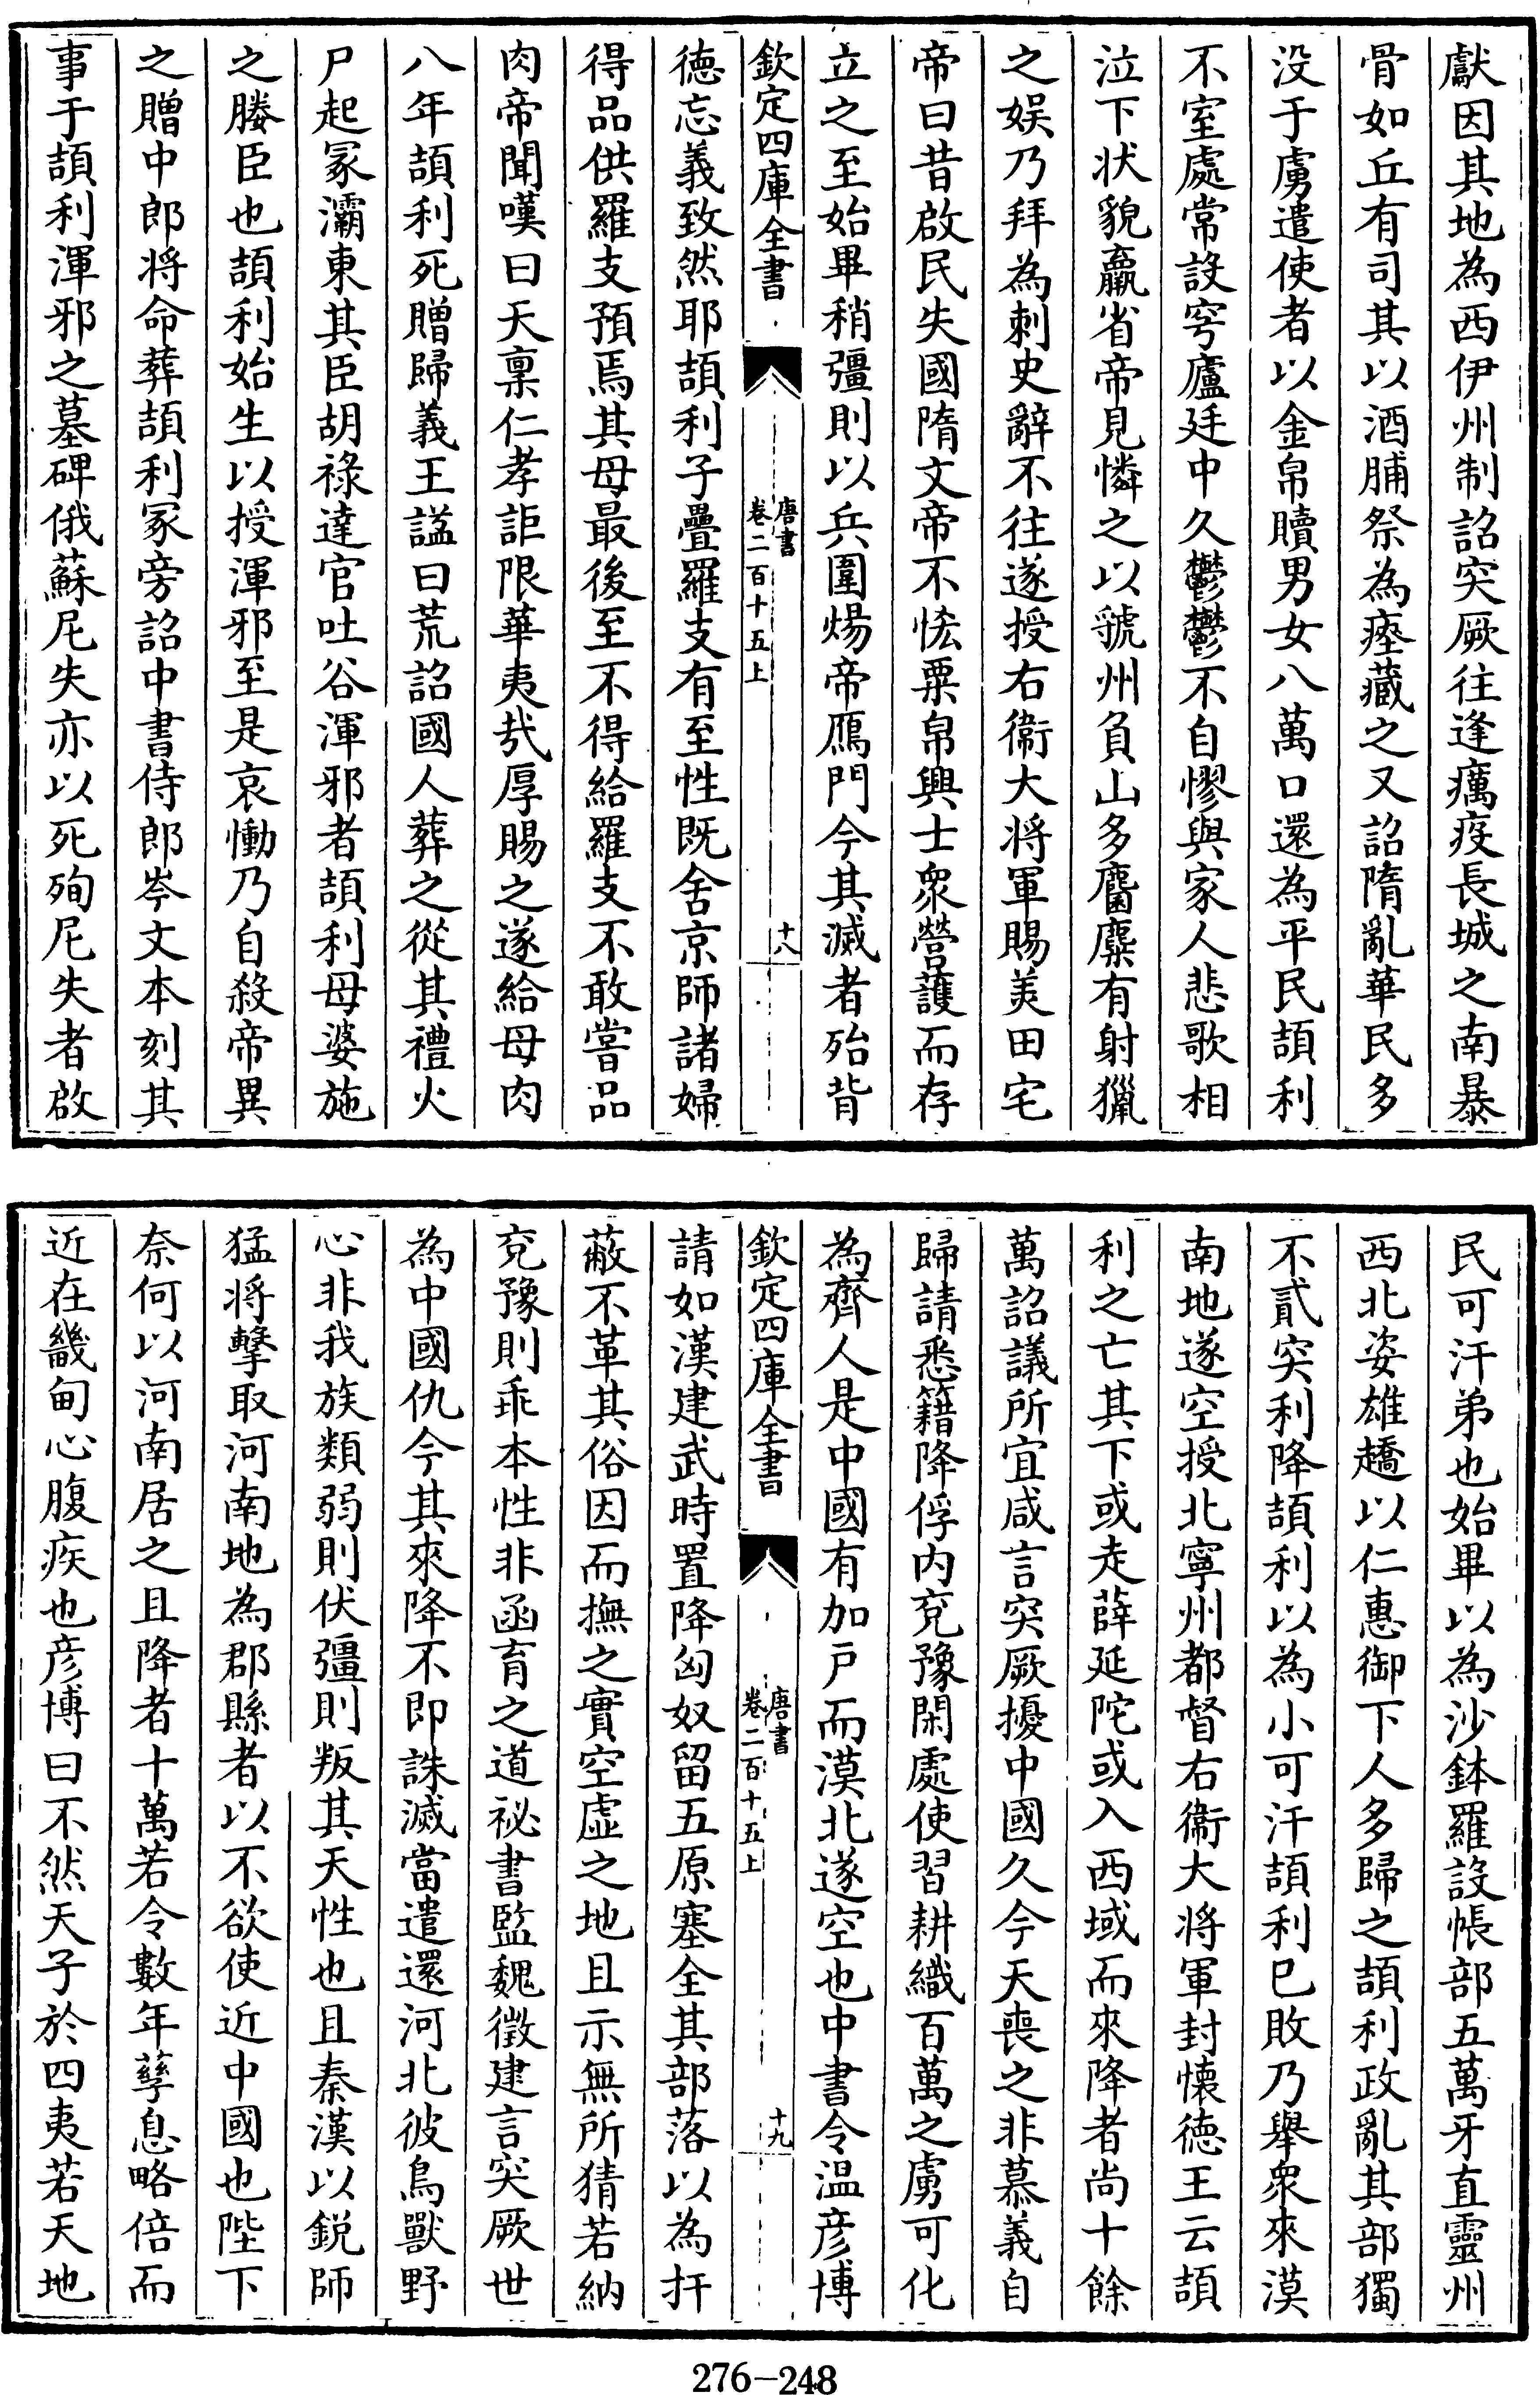 獻因其地為西伊州制詔突厥往逢癘疫長城之南暴
骨如丘有司其以酒脯祭為瘞藏之又詔隋亂華民多
没于虜遣使者以金帛贖男女八萬口還為平民頡利
不室處常設穹廬廷中久鬱鬱不自憀與家人悲歌相
泣下状貌羸省帝見憐之以虢州負山多麕麋有射獵
之娱乃拜為刺史辭不往遂授右衞大将軍賜美田宅
帝曰昔啟民失國隋文帝不恡粟帛興士衆營護而存
立之至始畢稍彊則以兵圍煬帝鴈門今其滅者殆背
欽定四庫全書
唐書
卷二百十五上
十八
徳忘義致然耶頡利子疊羅支有至性既舍京師諸婦
得品供羅支預焉其母最後至不得給羅支不敢嘗品
肉帝聞嘆曰天稟仁孝詎限華夷㢤厚賜之遂給母肉
八年頡利死贈歸義王諡曰荒詔國人葬之從其禮火
尸起冢灞東其臣胡祿達官吐谷渾邪者頡利母婆施
之媵臣也頡利始生以授渾邪至是哀慟乃自殺帝異
之贈中郎将命葬頡利冢旁詔中書侍郎岑文本刻其
事于頡利渾邪之墓碑俄蘇尼失亦以死殉尼失者啟
民可汗弟也始畢以為沙鉢羅設帳部五萬牙直靈州
西北姿雄趫以仁惠御下人多歸之頡利政亂其部獨
不貳突利降頡利以為小可汗頡利已敗乃舉衆來漠
南地遂空授北寧州都督右衞大将軍封懐徳王云頡
利之亡其下或走薛延陀或入西域而來降者尚十餘
萬詔議所宜咸言突厥擾中國久今天喪之非慕義自
歸請悉籍降俘内兗豫閑處使習耕織百萬之虜可化
為齊人是中國有加戸而漠北遂空也中書令温彦博
欽定四庫全書
唐書
卷二百十五上
十九
請如漢建武時置降匈奴留五原塞全其部落以為扞
蔽不革其俗因而撫之實空虚之地且示無所猜若納
兗豫則乖本性非函育之道祕書監魏徵建言突厥世
為中國仇今其來降不即誅滅當遣還河北彼鳥獸野
心非我族類弱則伏彊則叛其天性也且秦漢以鋭師
猛将擊取河南地為郡縣者以不欲使近中國也陛下
奈何以河南居之且降者十萬若令數年孳息略倍而
近在畿甸心腹疾也彦博曰不然天子於四夷若天地
276-248